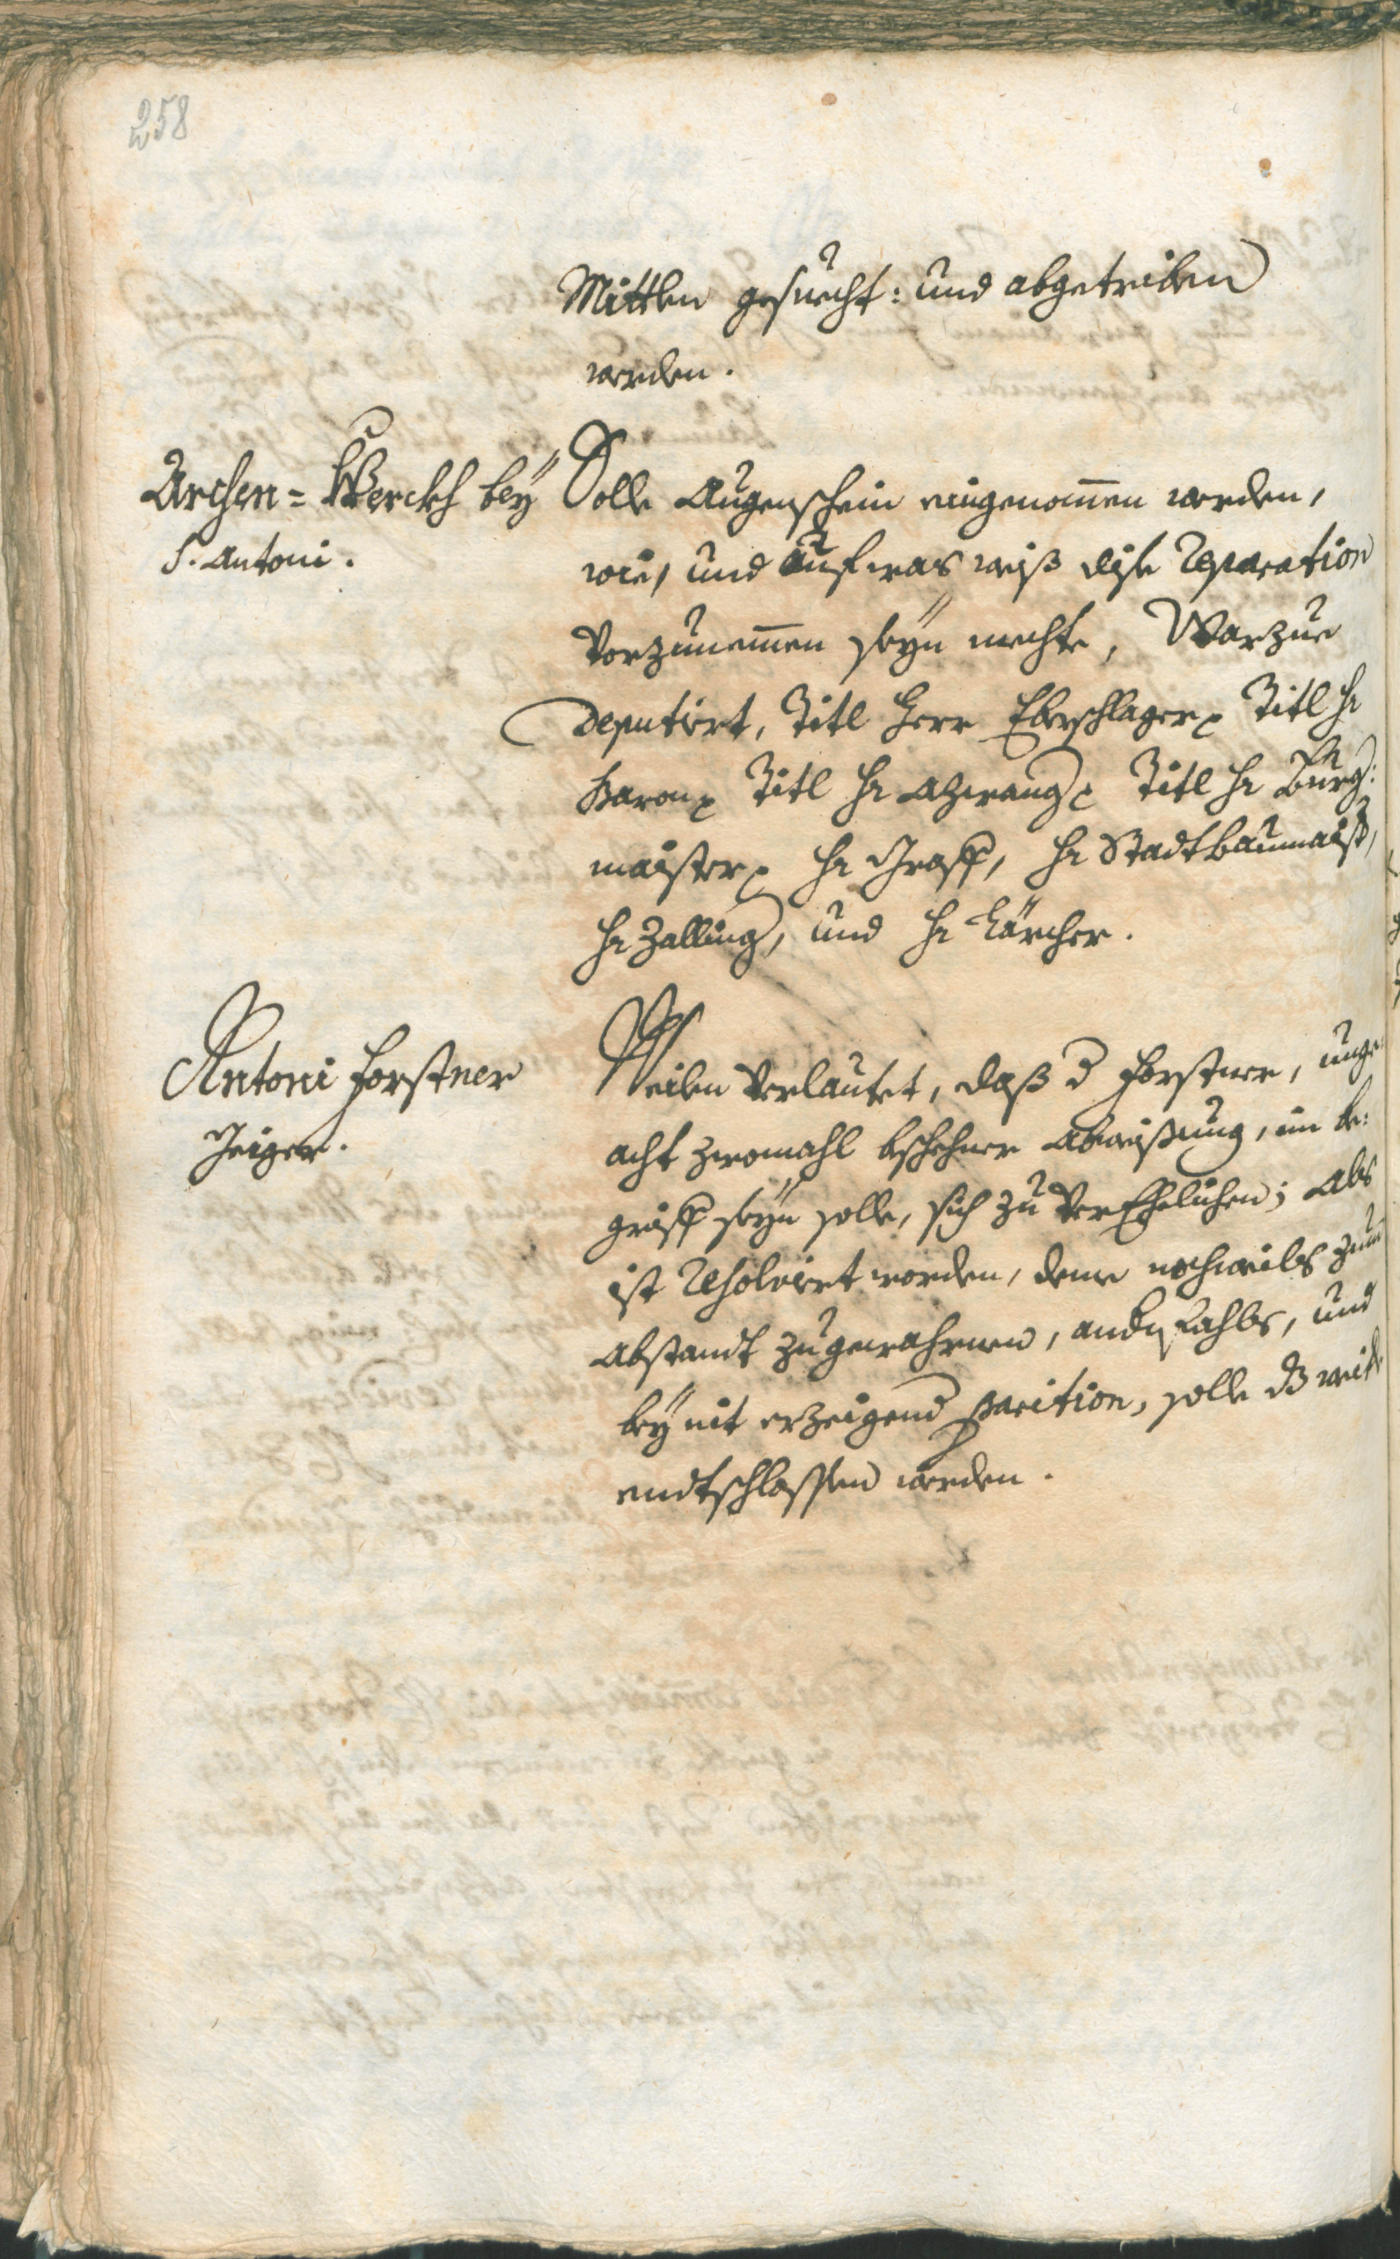 258
Mittlen gesuecht: und abgetriben
werden.
Archen-Werckh bey
S. Antoni.
Solle Augenschein eingenomen werden,
wie, und auf was weiß dise Reparation
vorzunemen seyn mechte, Warzue
Deputirt, Titl Herr Eberschlager Titl H
Baron Titl H Azwang Titl H Burg:
maister H Graff, H Stadtbaumaist,
H Zalling, und H Lärcher.
Antoni Forstner
Geiger.
Weilen verlautet, daß d Forstner, unge
acht zwomahl bschehner Abweißung, im be:
griff seyn solle, sich zu verEhelichen; Als
ist Resolvirt worden, deme nochmals zum
Abstandt zugewahrnen, andn fahls, und
bey nit erzeigend Parition, solle dz weite
endtschlossen werden.